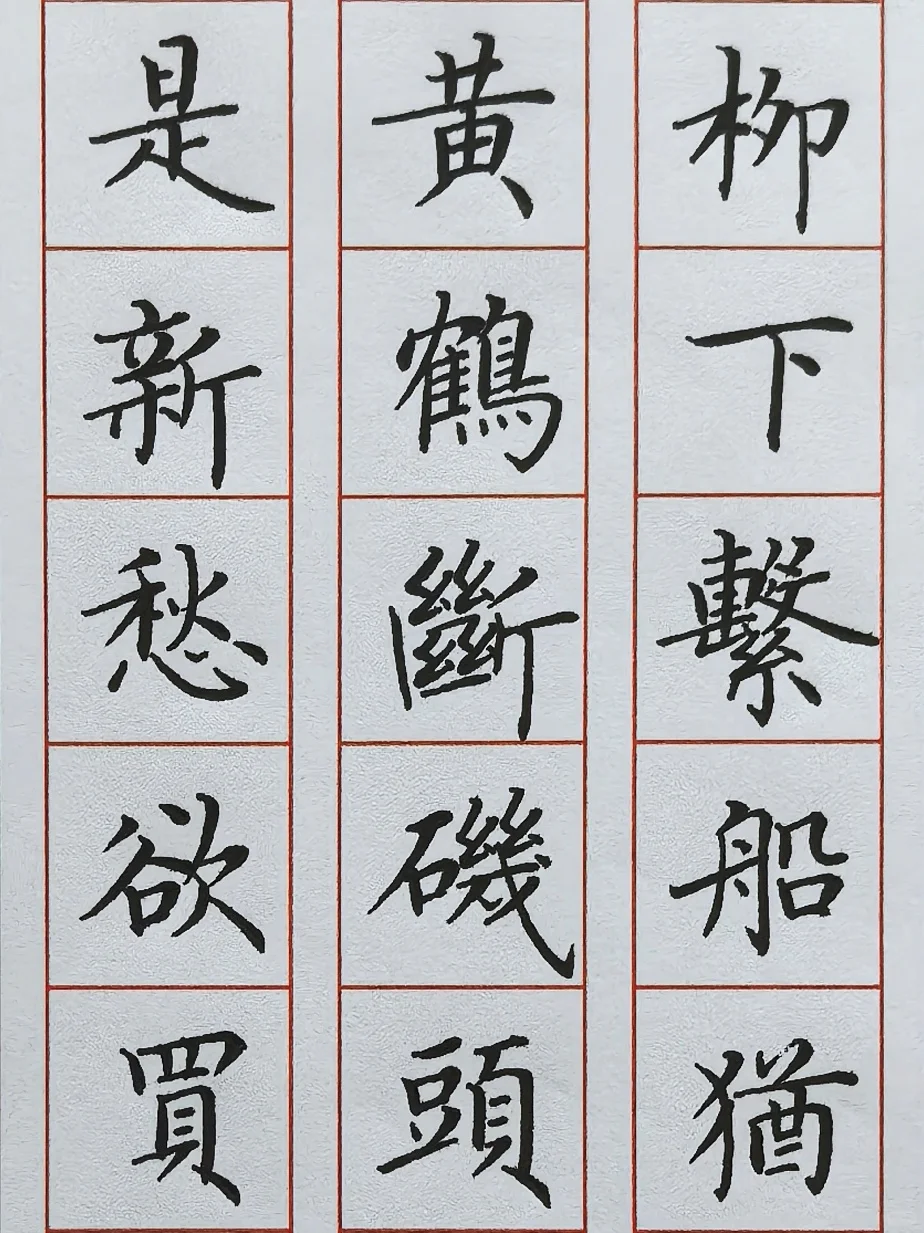 柳下繫船猶
黃鶴斷磯頭
是新愁欲買